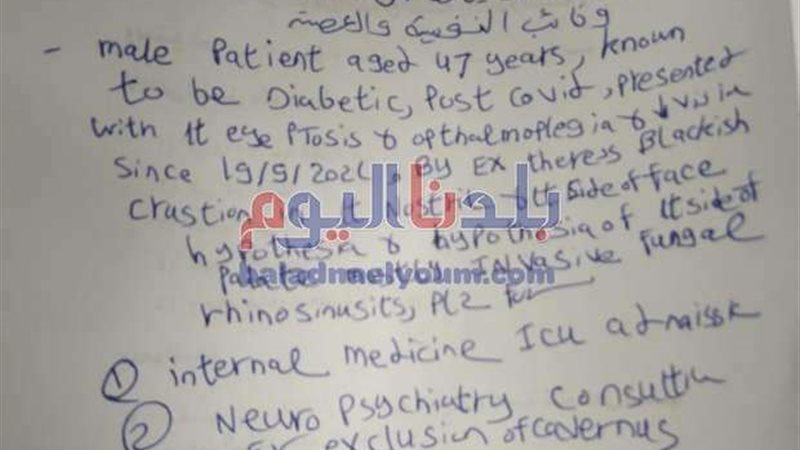 - male Patient aged 47 years, known
to be Diabetic, Post Covid, presented
with lt eye PTosis & opthalmoplegia & ↓ vision
Since 19/5/202 , By Ex theres Blackish
crustion in lt Nostril & lt Side of face
hypothesia & hypothosia of lt side of
Palate INVasive Fungal
rhinosinusits, PLZ for
بلدنا اليوم
baladnaelyoum.com
① internal medicine Icu admission
② Neuro Psychiatry Consultation
For exclusion of cavernus